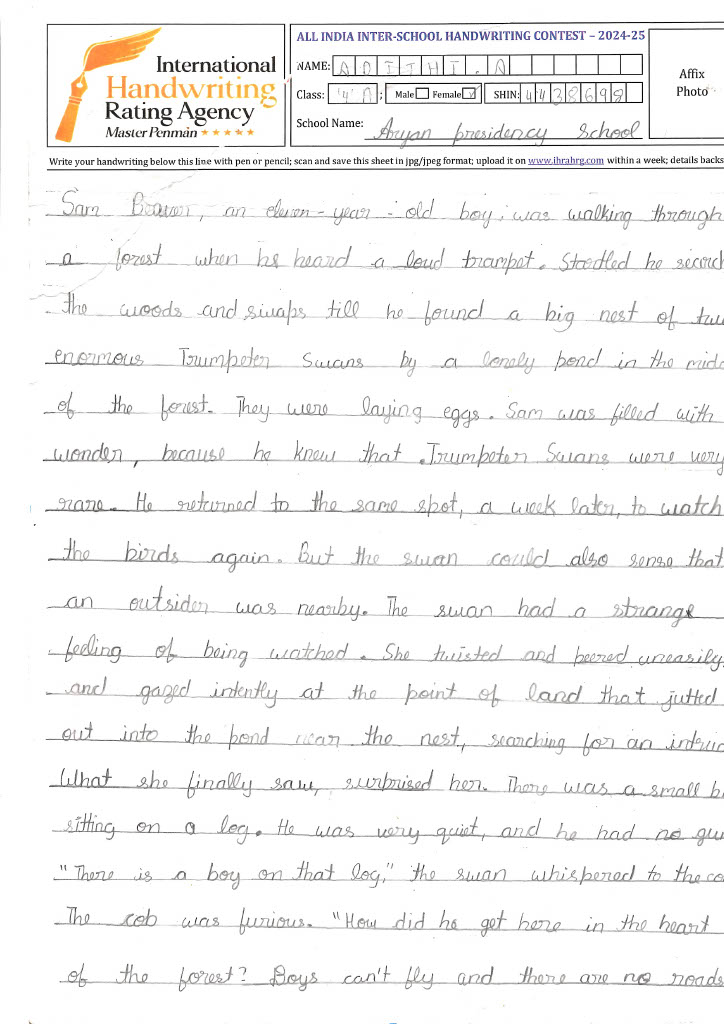 ALL INDIA INTER-SCHOOL HANDWRITING CONTEST – 2024-25
International
Handwriting
Rating Agency
Master Penman
NAME: ADITHI.A
Class: 4 A Male Female SHIN: 4438698
School Name: Aryan presidency School
Affix
Photo
Write your handwriting below this line with pen or pencil; scan and save this sheet in jpg/jpeg format; upload it on www.ihrahrg.com within a week; details backs
Sam Beaver, an eleven-year-old boy, was walking through
a forest when he heard a loud trumpet. he
the woods and swaps till he found a big nest of
enormous Trumpeter Swans by a lonely pond in the
of the forest. They were laying eggs. Sam was filled with
wonder, because he knew that Trumpeter Swans were very
rare. He returned to the same spot, a week later, to watch
the birds again. But the swan could also sense that
an outsider was nearby. The swan had a strange
feeling of being watched. She twisted and peered uneasily,
and gazed intently at the point of land that jutted
out into the pond near the nest, searching for an
What she finally saw, surprised her. There was a small
sitting on a log. He was very quiet, and he had no
"There is a boy on that log," the swan whispered to the
The cob was furious. "How did he get here in the heart
of the forest? Boys can't fly and there are no roads